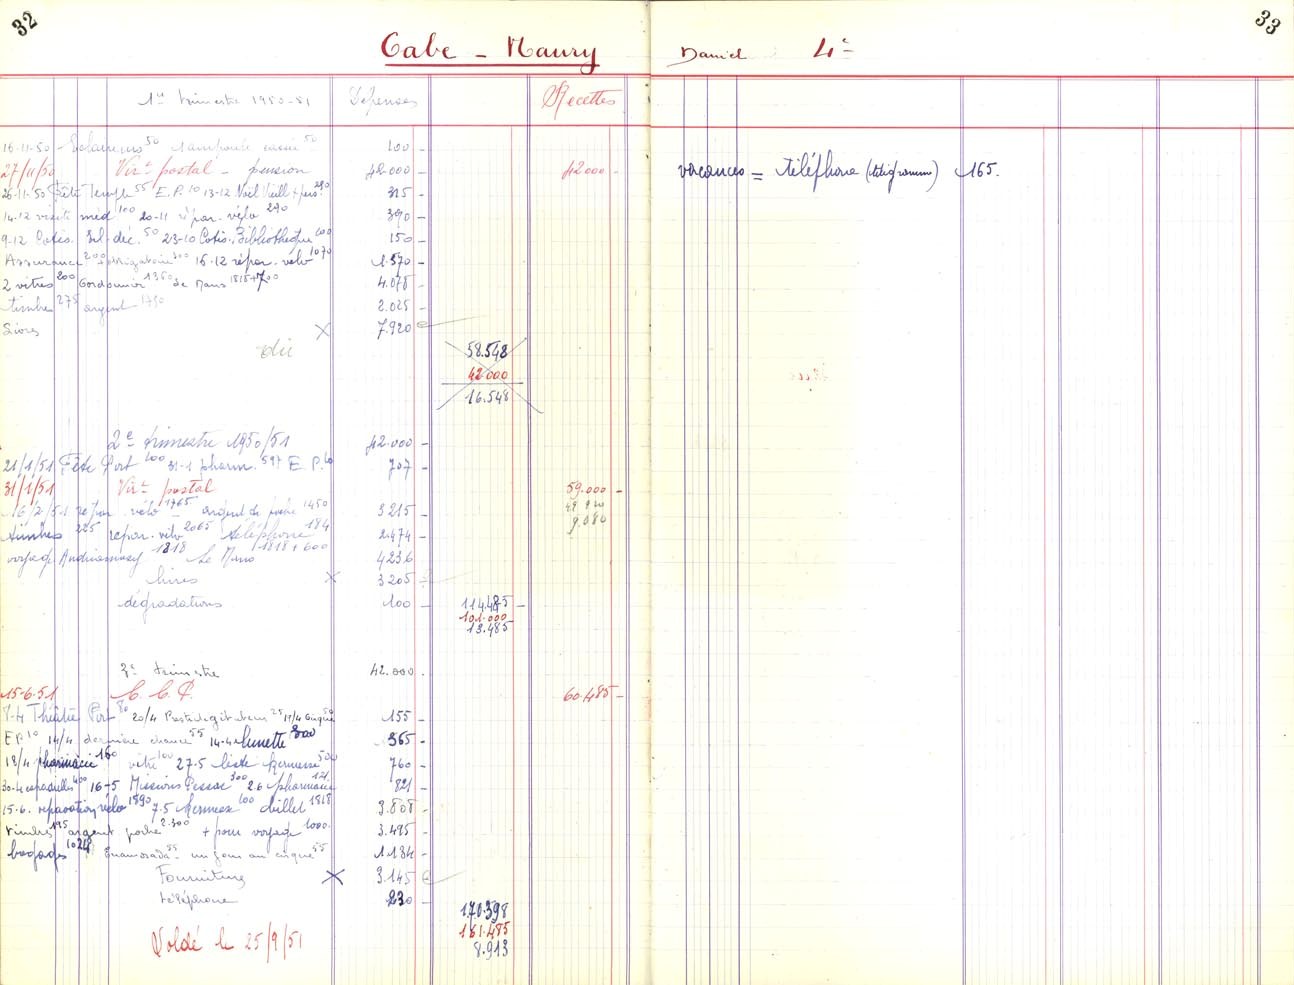 32
33
Cabe - Maury Daniel 4e
1er trimestre 1950-51 Dépenses Recettes
16-11-50 Eclaireurs 50 1 ampoule 50 100
27/11/50 Virt postal - pension 42.000 42.000
26-11-50 Fête Temple 55 E.P. 10 13-12 Noël Vieill 315
14-12 visite méd 100 20-11 répar. vélo 290 390
9-12 Cotis. 50 23-10 Cotis. Bibliothèque 100 150
Assurance 200 16-12 répar. vélo 1070 1.570
2 vitres 200 Cordonnier 1360 Le Mans 1818+700 4.078
timbre 275 argent 1750 2.025
Livres X 7.920
dû 58.548
42.000
16.548
2e trimestre 1950/51 42.000
21/1/51 Fête Port 100 31-1 pharm. 597 E.P. 10 707
31/1/51 Virt postal 59.000
16/2/51 répar. vélo 1765 argent de poche 1450 3215
49 920
9.080
timbres 225 répar. vélo 2065 téléphone 184 2.474
voyage 1818 Le Mans 1818+600 4236
livres X 3205
dégradations 100 114.485
101.000
13.485
3e trimestre 42.000
15-6-51 C.C.P. 60.485
8-4 Théâtre Port 80 20/4 Prestidigitateur 25 17/4 cirque 50 155
E.P. 10 14/4 dernière chance 55 14-4 lunette 300 365
18/4 pharmacie 160 vitre 100 27-5 kermesse 500 760
30-4 espadrilles 400 16-5 Missions Pessac 300 2.6 pharmacie 121 821
15-6. réparation vélo 1890 7.5 Kermesse 100 billet 1818 3.808
timbres 195 argent poche 2.300 + pour voyage 1000 3.495
bagages 1024 Enamorada 55 un jour au cirque 55 1.184
Fourniture X 3.145
téléphone 230
170.398
161.485
8.913
Soldé le 25/9/51
vacances = téléphone (télégramme) 165.